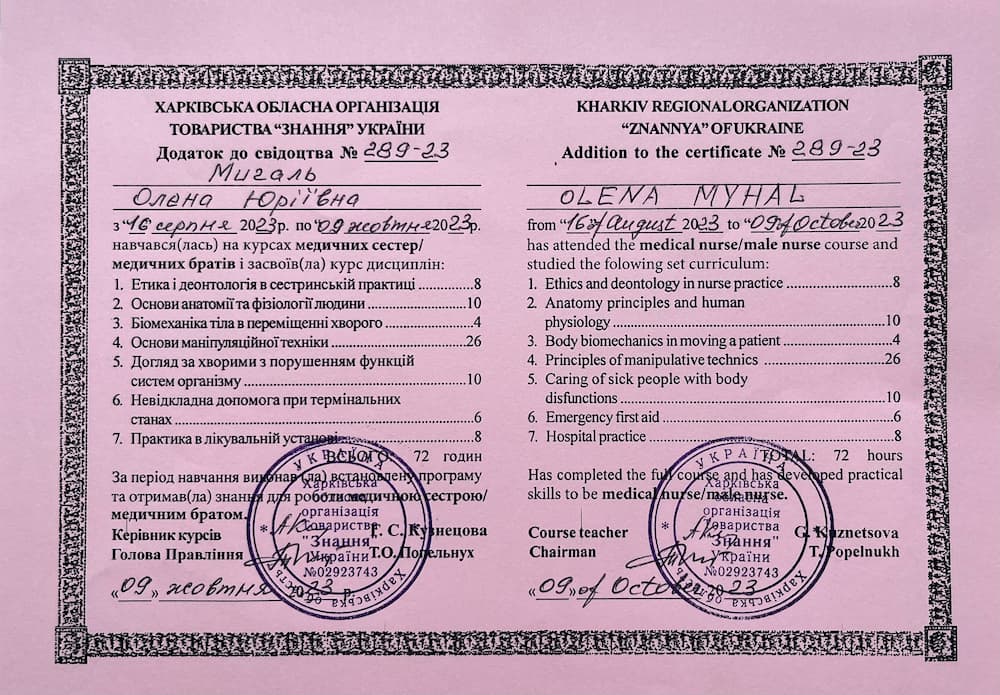 ХАРКІВСЬКА ОБЛАСНА ОРГАНІЗАЦІЯ
ТОВАРИСТВА “ЗНАННЯ” УКРАЇНИ
Додаток до свідоцтва № 289-23
Мигаль
Олена Юріївна
з “16 серпня 2023р. по “09 жовтня 2023р.
навчався(лась) на курсах медичних сестер/
медичних братів і засвоїв(ла) курс дисциплін:
1. Етика і деонтологія в сестринській практиці ..............8
2. Основи анатомії та фізіології людини ..........................10
3. Біомеханіка тіла в переміщенні хворого ......................4
4. Основи маніпуляційної техніки ..................................26
5. Догляд за хворими з порушенням функцій
систем організму ........................................................10
6. Невідкладна допомога при термінальних
станах...........................................................................6
7. Практика в лікувальній установі..................................8
ВСЬОГО: 72 годин
За період навчання виконав (ла) встановлену програму
та отримав(ла) знання для роботи медичною сестрою/
медичним братом.
Керівник курсів Г. С. Кузнецова
Голова Правління Т.О. Попельнух
«09» жовтня 2023 р.
УКРАЇНА
Харківська
обласна
організація
Товариства
"Знання"
України
№02923743
Харківська область
KHARKIV REGIONAL ORGANIZATION
“ZNANNYA” OF UKRAINE
Addition to the certificate № 289-23
OLENA MYHAL
from “16 of August 2023 to “09 of October 2023
has attended the medical nurse/male nurse course and
studied the folowing set curriculum:
1. Ethics and deontology in nurse practice ...........................8
2. Anatomy principles and human
physiology ....................................................................10
3. Body biomechanics in moving a patient ............................4
4. Principles of manipulative technics .................................26
5. Caring of sick people with body
disfunctions ..................................................................10
6. Emergency first aid ..........................................................6
7. Hospital practice ..............................................................8
TOTAL: 72 hours
Has completed the full course and has developed practical
skills to be medical nurse/male nurse.
Course teacher G. Kuznetsova
Chairman T. Popelnukh
«09» of October 2023
УКРАЇНА
Харківська
обласна
організація
Товариства
"Знання"
України
№02923743
Харківська область